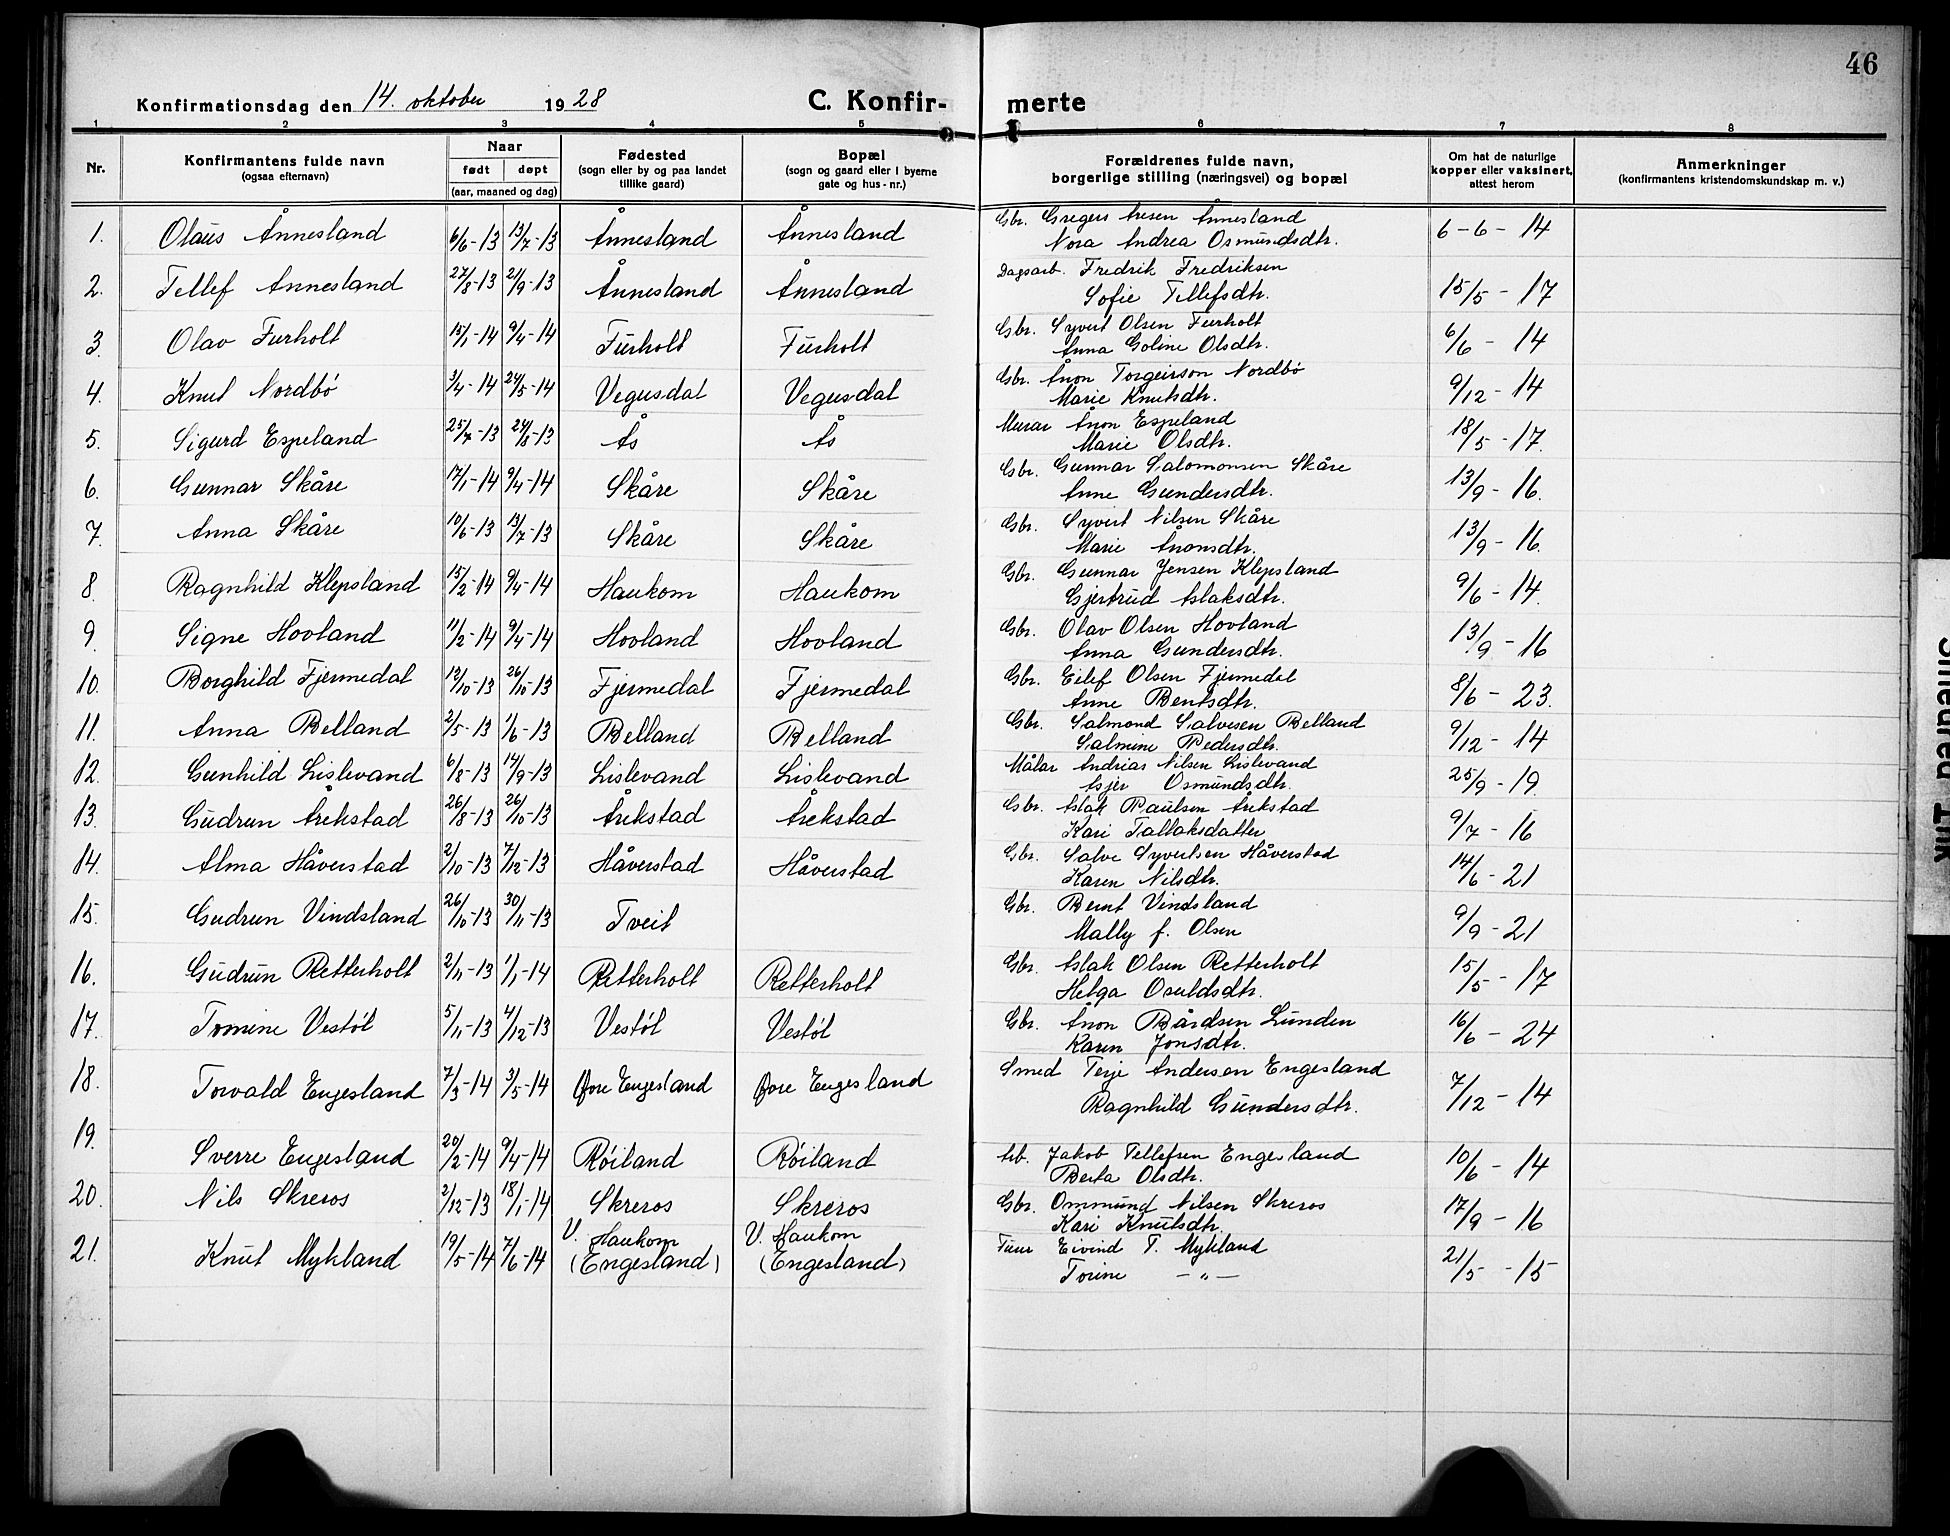 46
Konfirmationsdag den 14. oktober 1928 C. Konfir- merte
1 2 3 4 5 6 7 8
Nr. Konfirmantens fulde navn (ogsaa efternavn) Naar født døpt (aar, maaned og dag) Fødested (sogn eller by og paa landet tillike gaard) Bopæl (sogn og gaard eller i byerne gate og hus-nr.) Forældrenes fulde navn, borgerlige stilling (næringsvei) og bopæl Om hat de naturlige kopper eller vaksinert, attest herom Anmerkninger (konfirmantens kristendomskundskap m. v.)
1. Olaus Ånnesland 6/6-13 13/7-13 Ånnesland Ånnesland Gbr. Gregers Aresen Ånnesland
Nora Andrea Osmundsdtr. 6-6-14
2. Tellef Ånnesland 27/8-13 21/9-13 Ånnesland Ånnesland Dagsarb. Fredrik Fredriksen
Sofie Tellefsdtr. 15/5-17
3. Olav Furholt 15/1-14 9/4-14 Furholt Furholt Gbr. Syvert Olsen Furholt
Anna Goline Olsdtr. 6/6-14
4. Knut Nordbö 3/4-14 24/5-14 Vegusdal Vegusdal Gbr. Ånon Torgeirson Nordbö
Marie Knutsdtr. 9/12-14
5. Sigurd Espeland 25/7-13 24/8-13 Ås Ås Murar Ånon Espeland
Marie Olsdtr. 18/5-17.
6. Gunnar Skåre 17/1-14 9/4-14 Skåre Skåre Gbr. Gunnar Salomonsen Skåre
Anne Gundersdtr. 13/9-16.
7. Anna Skåre 10/6-13 13/7-13 Skåre Skåre Gbr. Syvert Nilsen Skåre
Marie Ånonsdtr. 13/9-16.
8. Ragnhild Klepsland 15/2-14 9/4-14 Haukom Haukom Gbr. Gunnar Jensen Klepsland
Gjertrud Aslaksdtr. 9/6-14.
9. Signe Hovland 11/2-14 9/4-14 Hovland Hovland Gbr. Olav Olsen Hovland
Anna Gundersdtr. 13/9-16
10. Borghild Fjermedal 12/10-13 26/10-13 Fjermedal Fjermedal Gbr. Eilef Olsen Fjermedal
Anne Bentsdtr. 8/6-23.
11. Anna Belland 2/5-13 1/6-13 Belland Belland Gbr. Salmond Salvesen Belland
Salmine Pedersdtr. 9/12-14
12. Gunhild Lislevand 6/8-13 14/9-13 Lislevand Lislevand Målar Andrias Nilsen Lislevand
Asjer Osmundsdtr. 25/9-19
13. Gudrun Årekstad 26/8-13 26/10-13 Årekstad Årekstad Gbr. Aslak Paulsen Årekstad
Kari Tallaksdatter 9/7-16
14. Alma Håverstad 2/10-13 7/12-13 Håverstad Håverstad Gbr. Salve Syvertsen Håverstad
Karen Nilsdtr. 14/6-21
15. Gudrun Vindsland 26/10-13 30/11-13 Tveit Gbr. Bernt Vindsland
Mally f. Olsen 9/9-21
16. Gudrun Retterholt 2/11-13 1/1-14 Retterholt Retterholt Gbr. Aslak Olsen Retterholt
Helga Osuldsdtr. 15/5-17
17. Tomine Vestöl 5/11-13 4/12-13 Vestöl Vestöl Gbr. Ånon Bårdsen Lunden
Karen Jonsdtr. 16/6-24
18. Torvald Engesland 7/3-14 3/5-14 Øvre Engesland Øvre Engesland Smed Terje Andersen Engesland
Ragnhild Gundersdtr. 7/12-14
19. Sverre Engesland 20/2-14 9/4-14 Röiland Röiland Arb. Jakob Tellefsen Engesland
Berta Olsdtr. 10/6-14
20. Nils Skreros 2/12-13 18/1-14 Skreros Skreros Gbr. Ommund Nilsen Skreros
Kari Knutsdtr. 17/9-16
21. Knut Mykland 19/5-14 7/6-14 V. Haukom (Engesland) V. Haukom (Engesland) Eivind T. Mykland
Torine -"- 21/5-15